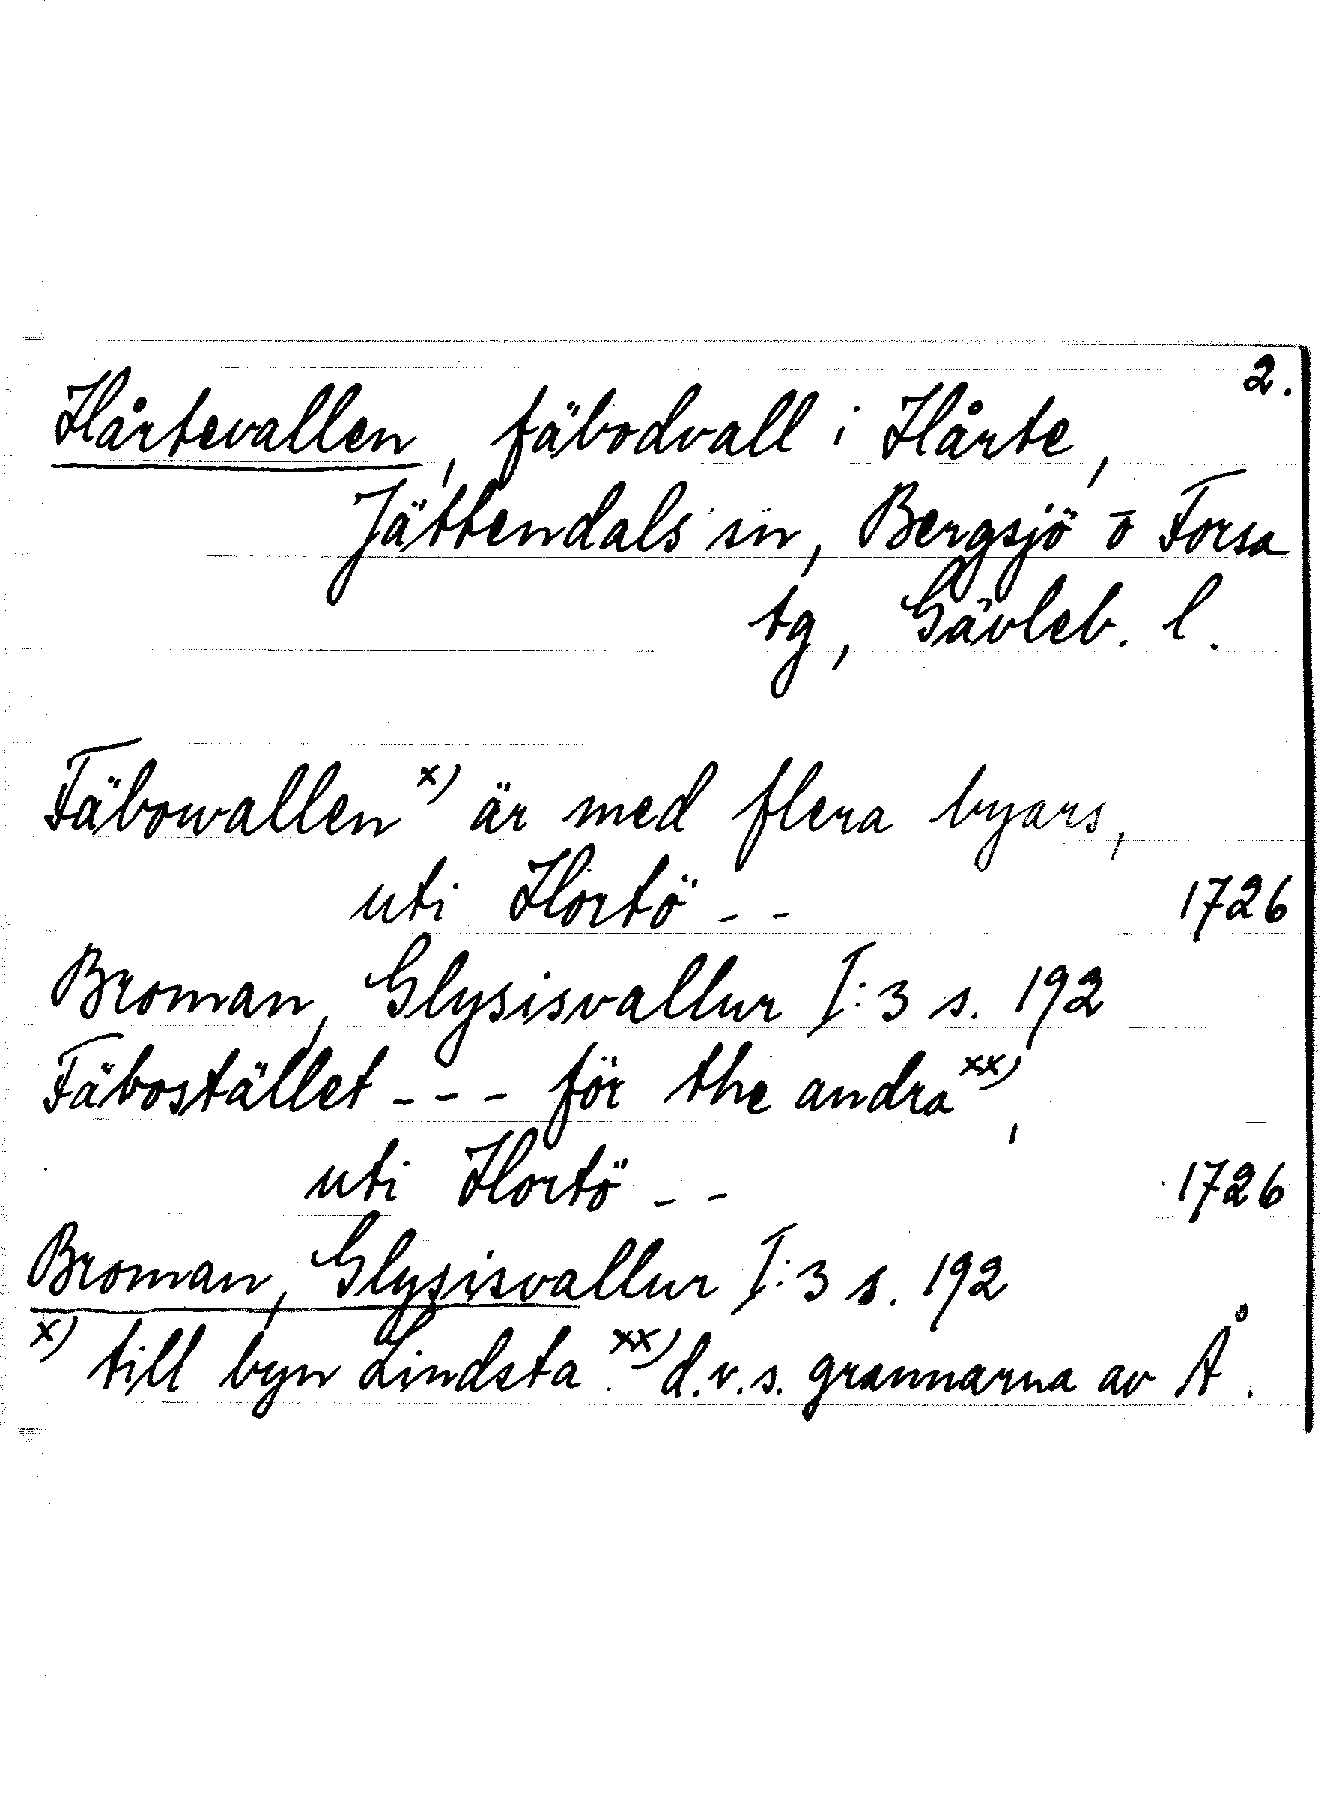 2.
Hårtevallen, fäbodvall i Hårte,
Jättendals sn, Bergsjö o Forsa
tg, Gävleb. l.
Fäbowallen x) är med flera byars,
uti Hortö - - 1726
Broman, Glysisvallur I:3 s. 192
Fäbostället - - - för the andra xx),
uti Hortö - - 1726
Broman, Glysisvallur I:3 s. 192
x) till byn Lindsta. xx) d.v.s. grannarna av Å.